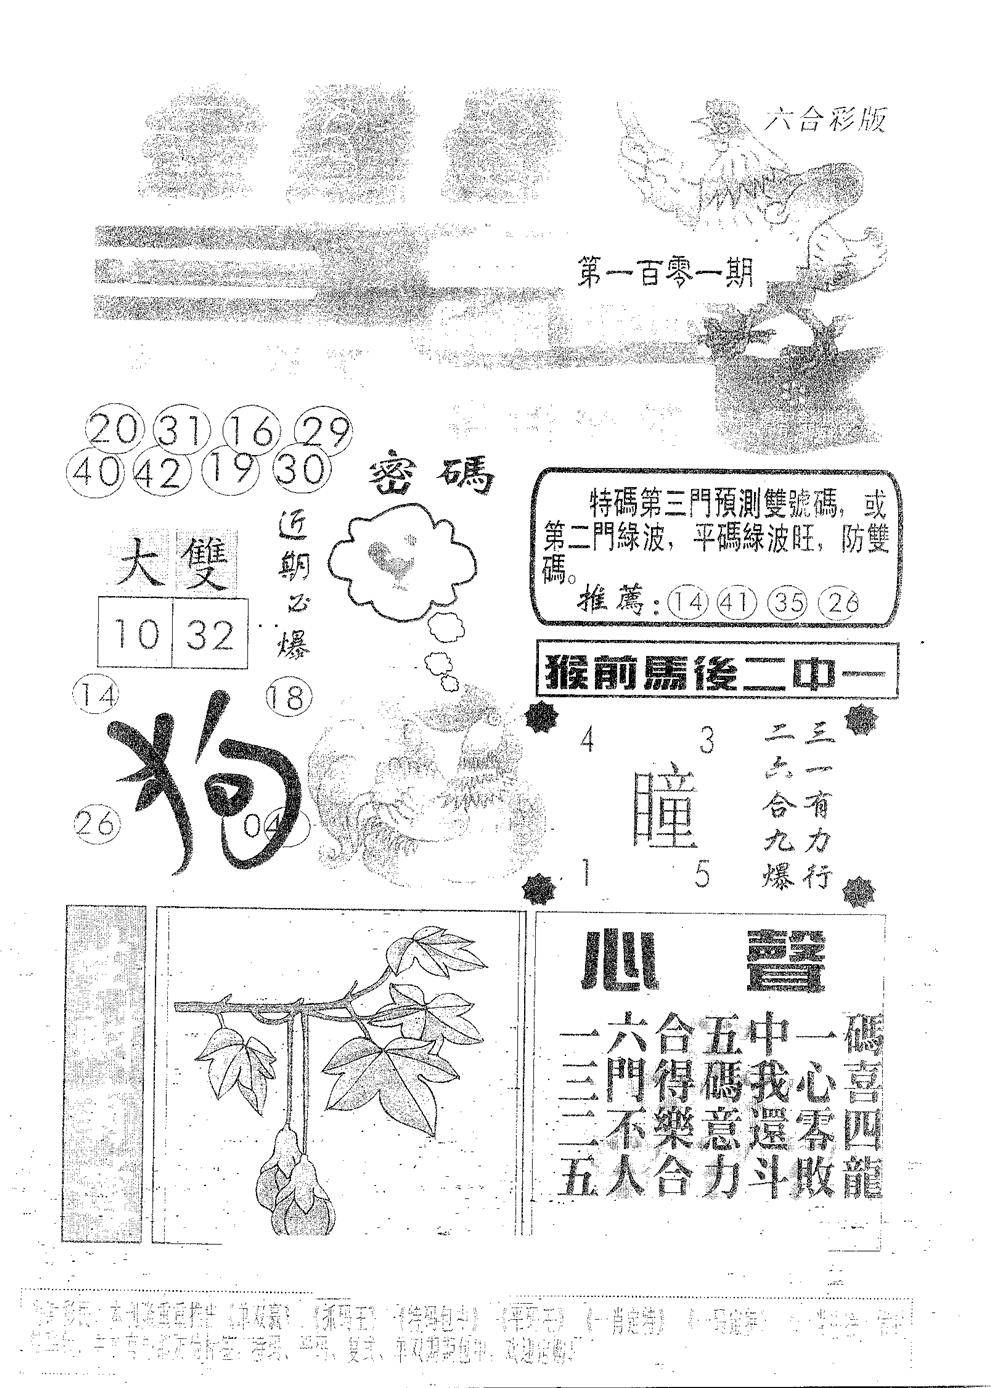 六合彩版
第一百零一期
20 31 16 29
40 42 19 30
密碼
近期必爆
大 雙
10 32
特碼第三門預測雙號碼，或
第二門綠波，平碼綠波旺，防雙
碼。
推薦：14 41 35 26
猴前馬後二中一
14 18
狗
26 04
4 3
瞳
1 5
三一有力行
二六合九爆
心聲
一六合五中一碼
三門得碼我心喜
二不樂意還零四
五人合力斗敗龍